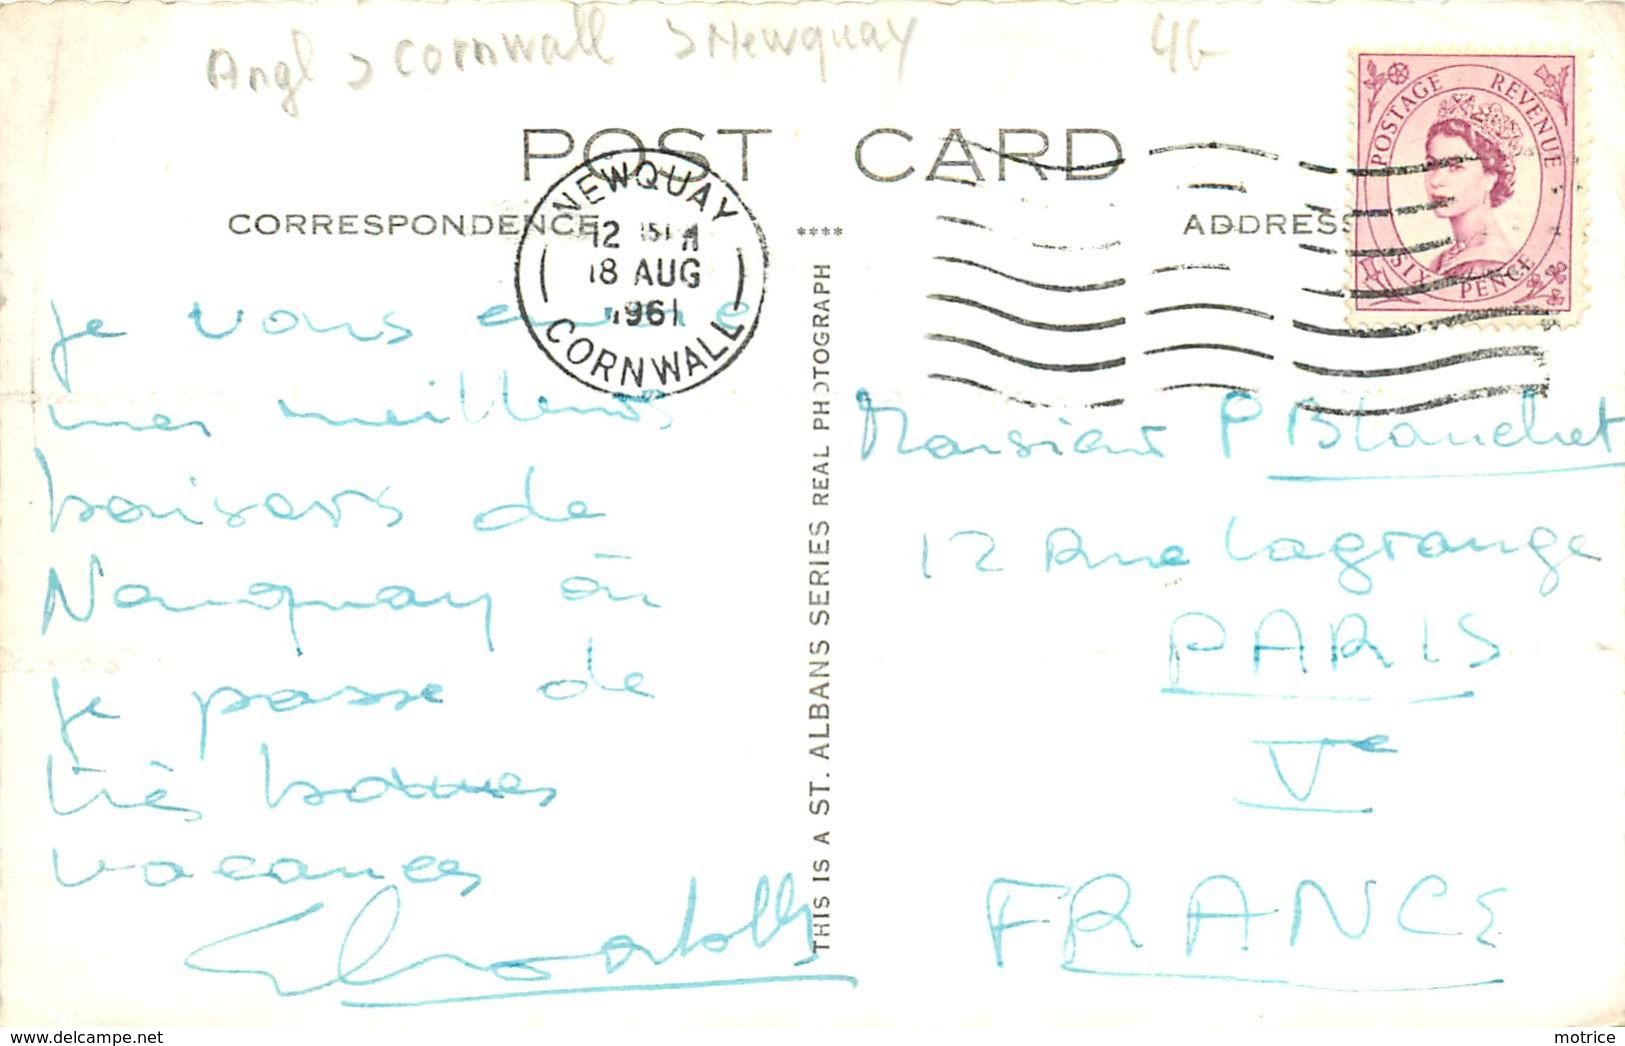 Angl > Cornwall > Newquay
4G
POST CARD
CORRESPONDENCE
ADDRESS
****
NEWQUAY
18 AUG
1961
CORNWALL
POSTAGE REVENUE
SIX PENCE
THIS IS A ST. ALBANS SERIES REAL PHOTOGRAPH
je vous envoie
mes meilleurs
baisers de
Newquay où
je passe de
très bonnes
vacances
Monsieur P Blanchet
12 Rue Lagrange
PARIS
Ve
FRANCE
http://www.delcampe.net
motrice